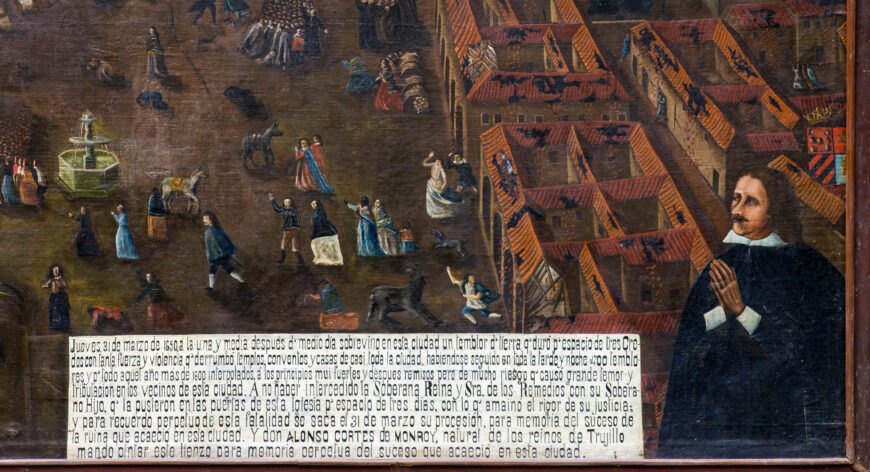 Jueves, 31 de marzo de 1650, a la una y media después dᵉ medio día sobrevino en esta ciudad un temblor dᵉ tierra qᵉ duró pʳ espacio de tres Cre
dos con tanta fuerza y violencia qᵉ derrumbó templos, conventos y casas de casi toda la ciudad, habiéndose seguido en toda la tarde y noche 400 temblo
res y pʳ todo aquel año más de 1600 interpolados, a los principios mui fuertes y despues remisos pero de mucho riesgo qᵉ causó grande temor y
tribulación en los vecinos de esta ciudad. A no haber intercedido la Soberana Reina y Sra. de los Remedios con su Sobera-
no Hijo, qᵉ la pusieron en las puertas de esta Iglesia pʳ espacio de tres días, con lo qᵉ amainó el rigor de su justicia,
y para recuerdo perpetuo de esta fatalidad se saca el 31 de marzo su procesión, para memoria del suceso de
la ruina que acaeció en esta ciudad. Y don ALONSO CORTES de MONROY, natural de los reinos de Trujillo
mando pintar este lienzo para memoria perpetua del suceso que acaeció en esta ciudad.